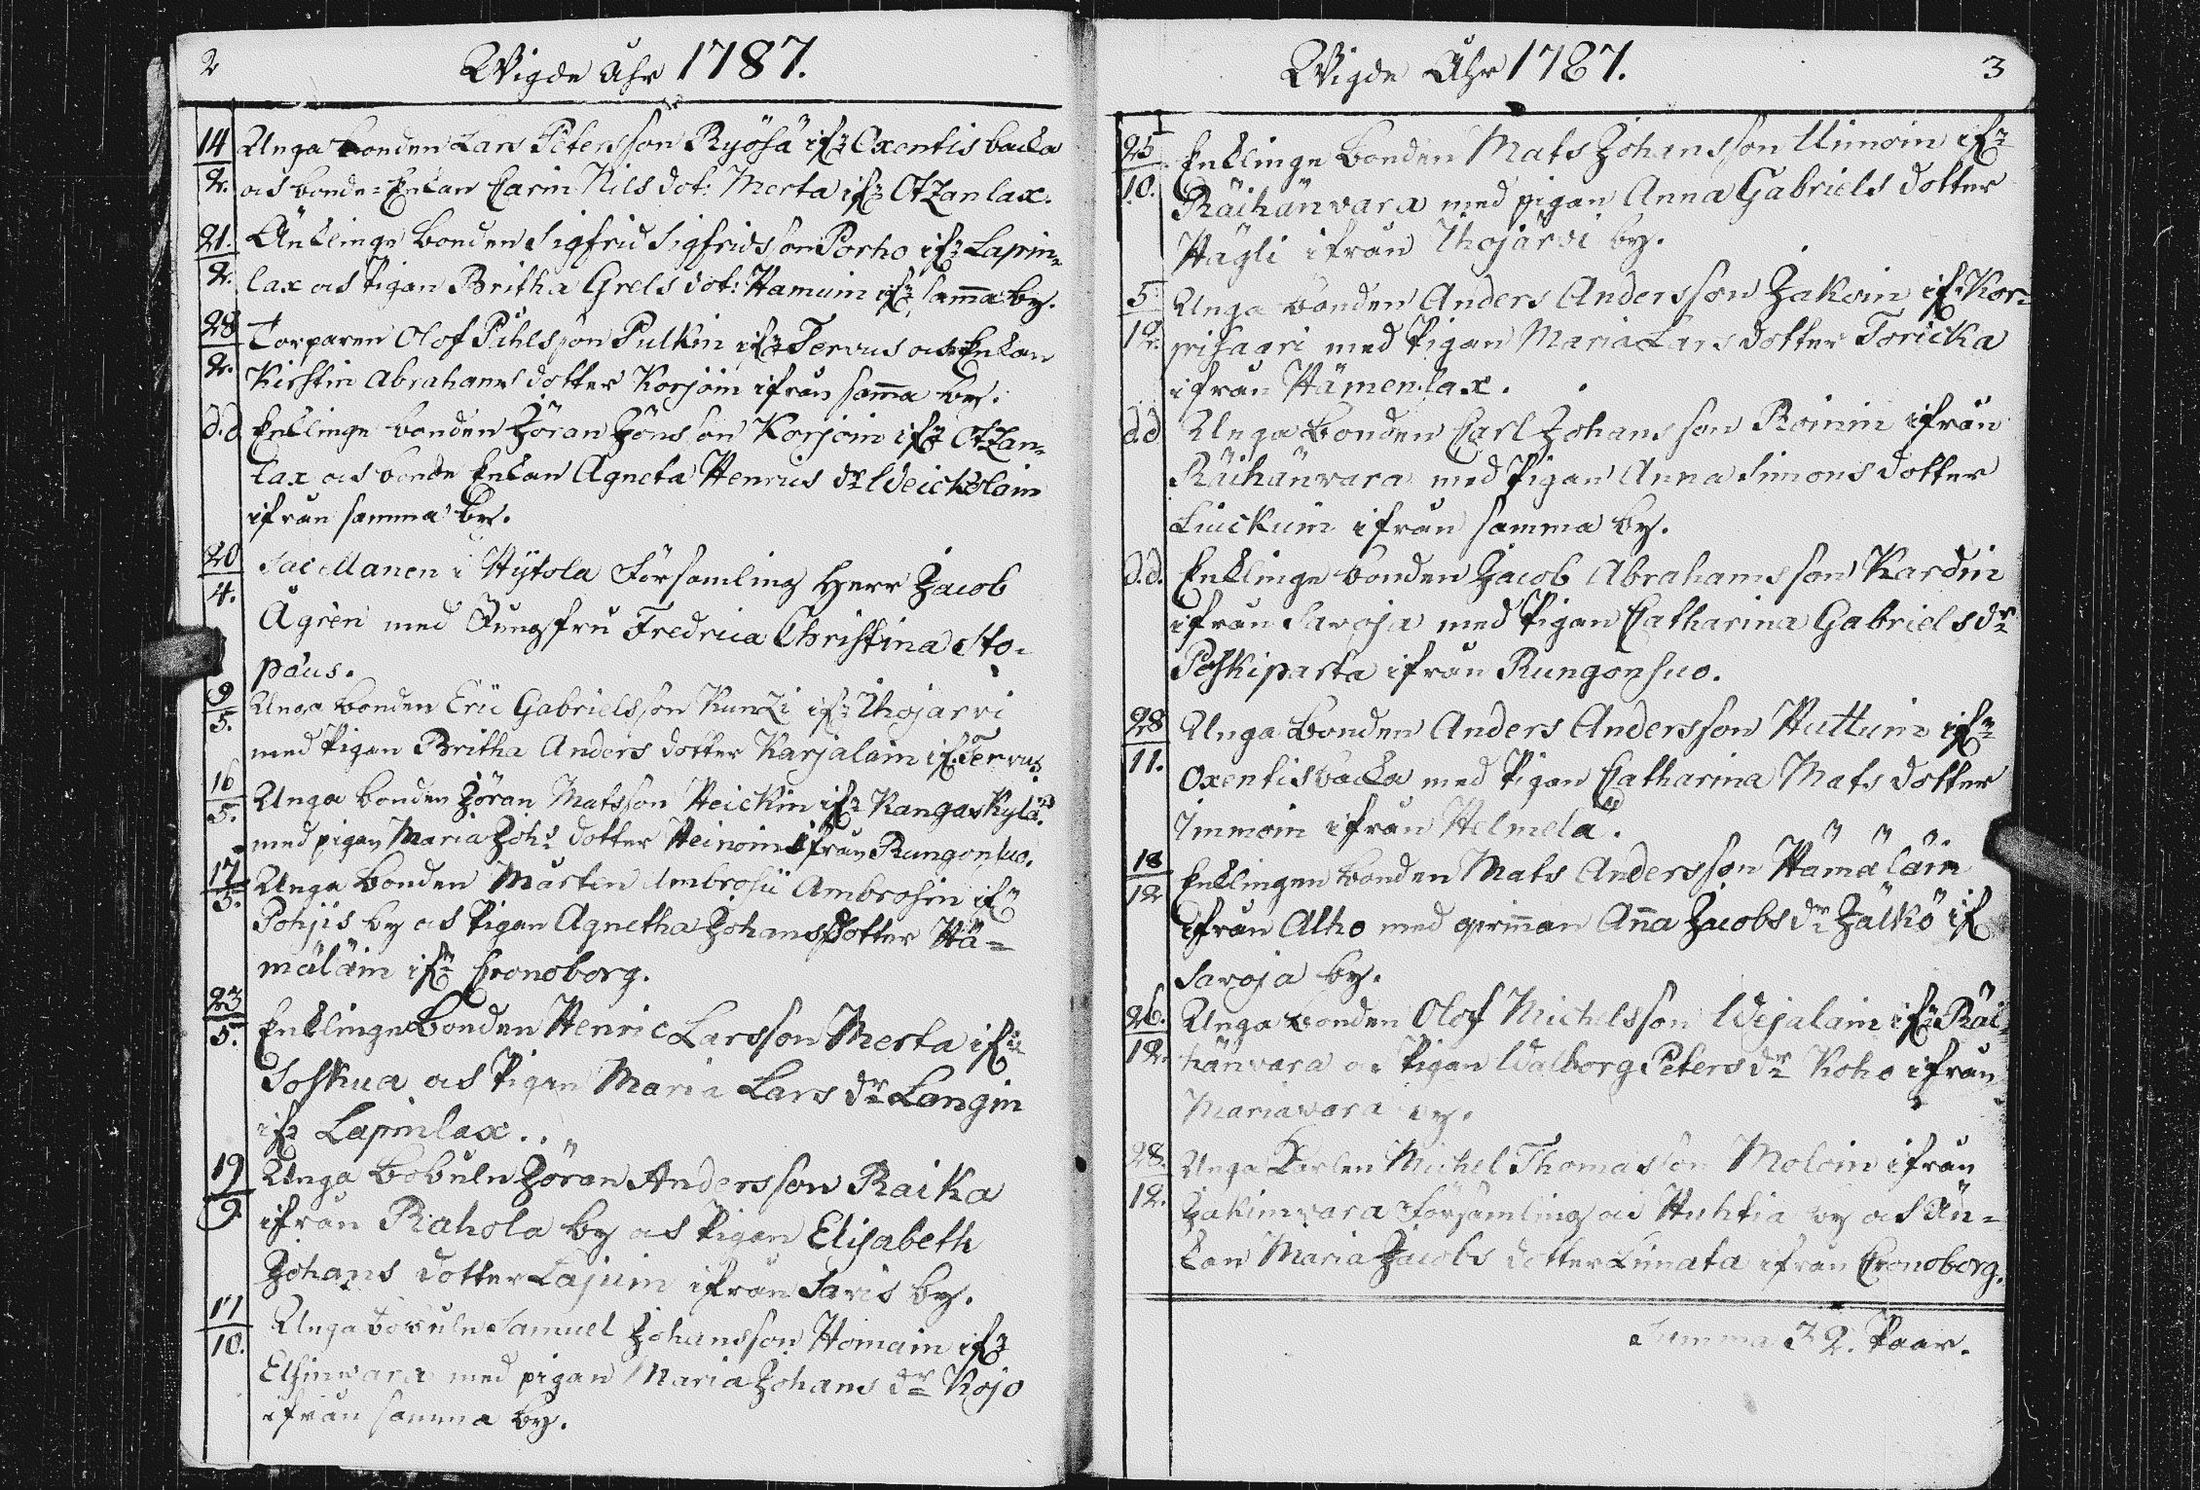 2
Wigde Åhr 1787.
14/2. Unga bonden Lars Petersson Ryösä ifr Oxentisbacka
och bonde-Enkan Carin Nils dot: Merta ifr Otzanlax.
21./2. Änklinge bonden Sigfrid Sigfridsson Porho ifr Lapin-
lax och Pigan Britha Grels dot: Hamuin ifr samma by.
28/2. Torparen Olof Pihlsson Pulkin ifr Tervus och Enkan
Kirstin Abrahams dotter Korjoin ifrån samma by.
d.d. Enklinge bonden Jöran Jönsson Korjoin ifr Otzan-
lax och bonde Enkan Agneta Henrics dr Weickolain
ifrån samma by.
20/4. Sacellanen i Hytola Församling Herr Jacob
Ågren med Jungfru Fredrica Christina Sto-
päus.
9/5. Unga bonden Eric Gabrielsson Kunzi ifr Ihojarvi
med Pigan Britha Anders dotter Karjalain if. Tervus
16/5. Unga bonden Jöran Matsson Heickin ifr Kangaskylä
med pigan Maria Johs dotter Heinoin ifrån Rungonsuo.
17./5. Unga bonden Mårten Ambrosii Ambrosin ifr
Pohjis by och Pigan Agnetha Johans Dotter Hä-
mäläin ifr Cronoborg.
23/5. Enklinge Bonden Henric Larsson Merta ifr
Soskua och Pigan Maria Lars dr Langin
ifr Lapinlax.
19/9. Unga Bobuln Jöran Andersson Raika
ifrån Rahola by och Pigan Elisabeth
Johans dotter Lajuin ifrån Saris by.
11/10. Unga bobuln Samuel Johansson Homain ifr
Elsinwara med pigan Maria Johans dr Kojo
ifrån samma by.
Wigde Åhr 1787.
3
25/10. Enklinge Bonden Mats Johansson Uimoin ifr
Räihänvara med pigan Anna Gabriels dotter
Hägli ifrån Ihojärvi by.
5/12. Unga bonden Anders Andersson Jakoin if. Kor-
pisaari med Pigan Maria Lars dotter Toricka
ifrån Hämenlax.
d.d. Unga Bonden Carl Johansson Roinin ifrån
Räihänvara med Pigan Anna Simons dotter
Luickuin ifrån samma by.
d.d. Enklinge bonden Jacob Abrahamsson Kardin
ifrån Savoja med Pigan Catharina Gabriels dr
Peskiparta ifrån Rungonsuo.
28/11. Unga Bonden Anders Andersson Huttuin ifr
Oxentisbacka med Pigan Catharina Mats dotter
Immoin ifrån Helmelä.
18/12 Enklingen bonden Mats Andersson Hämäläin
ifrån Alho med qvinnan Anna Jacobs dr Jälkö if
Savoja by.
26./12. Unga bonden Olof Michelsson Wejalain ifr Räi-
hänvara och Pigan Walborg Peters dr Koho ifrån
Mariavara by.
28./12. Unga Karlen Michel Thomasson Moloin ifrån
Jakimvara Församling och Huhtia by och Än-
kan Maria Jacobs dotter Limata ifrån Cronoborg.
Summa 32. Paar.